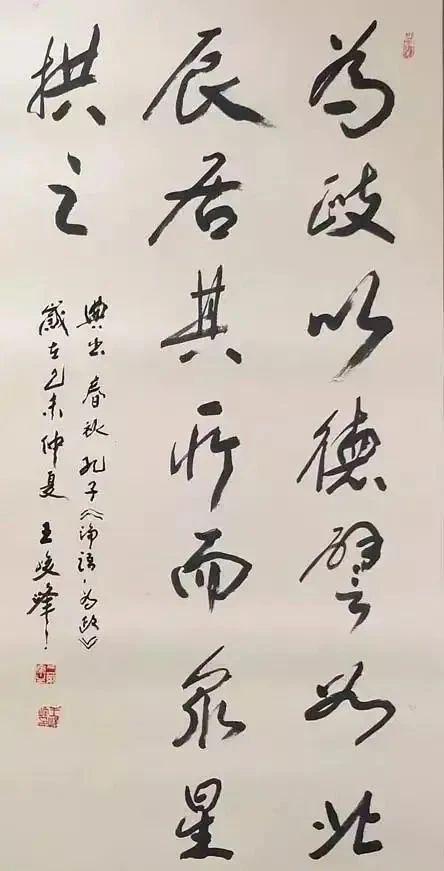 為政以德譬如北
辰居其所而衆星
拱之
典出春秋孔子《論語·為政》
歲在乙未仲夏 王峻峰